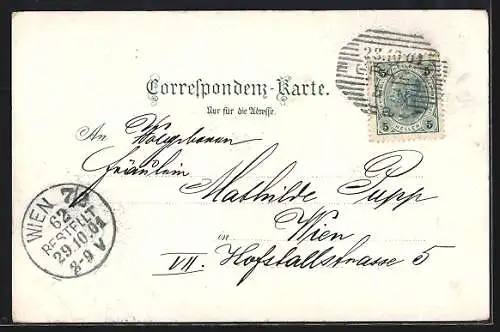 28.10.01
5 5
HELLER
5 5
Correspondenz-Karte.
Nur für die Adresse.
An Wolgeboren
Fräulein
Mathilde Pupp
in Wien
VII. Hofstallstrasse 5
WIEN 7/
62
BESTELLT
29.10.01
8-9 V